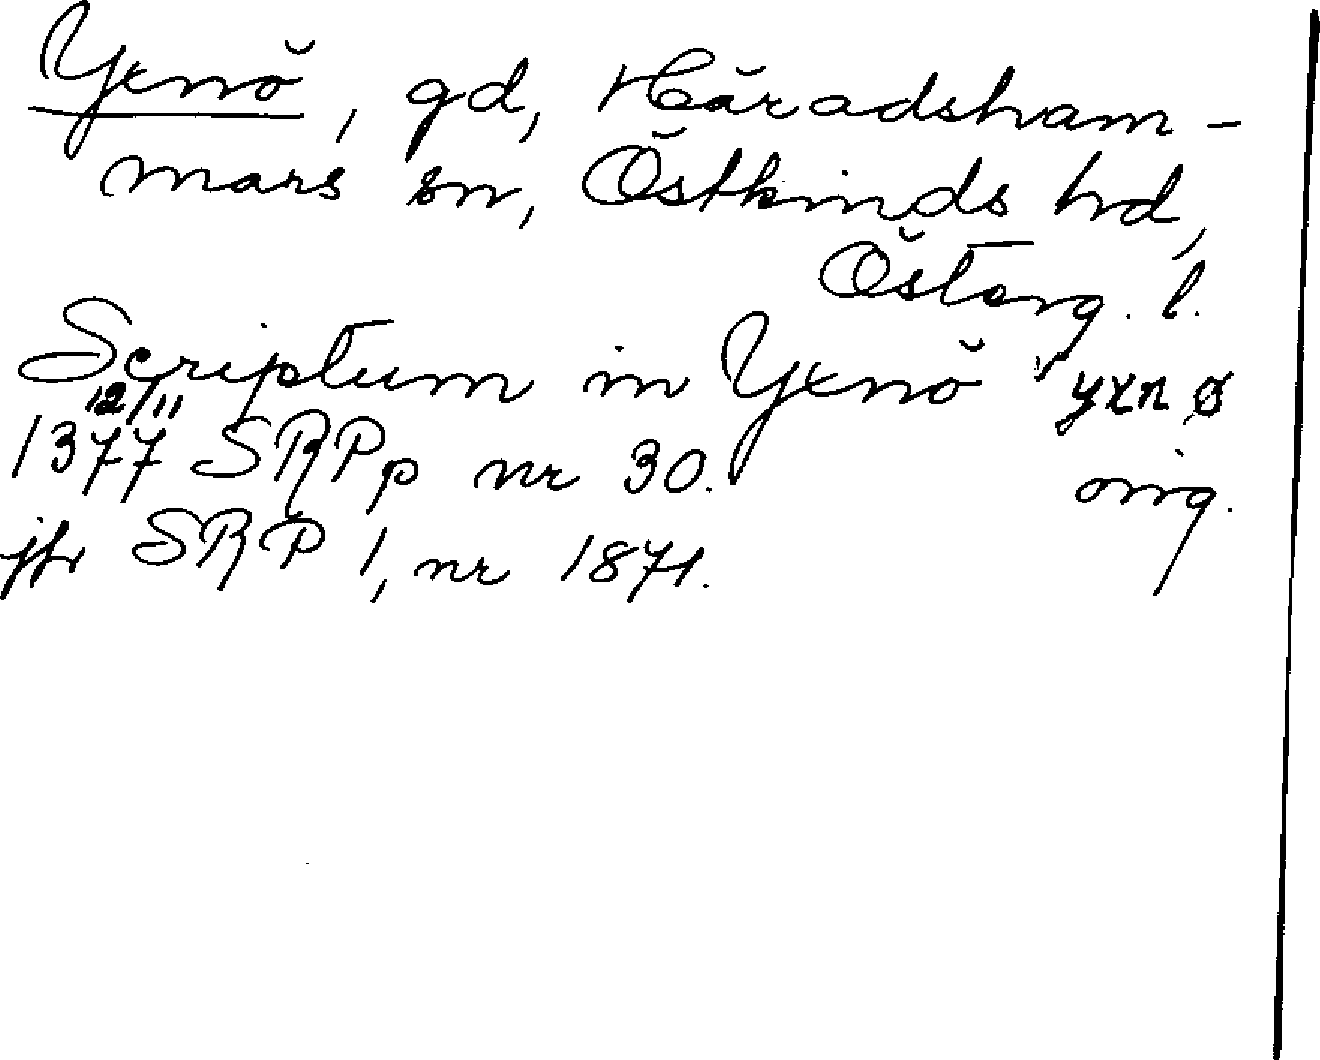 Yxnö, gd, Häradsham-
mars sn, Östkinds hd,
Österg. l.
Scriptum in Yxnö yxnø
12/11
1377 SRPp nr 30. orig.
jfr SRP 1, nr 1871.